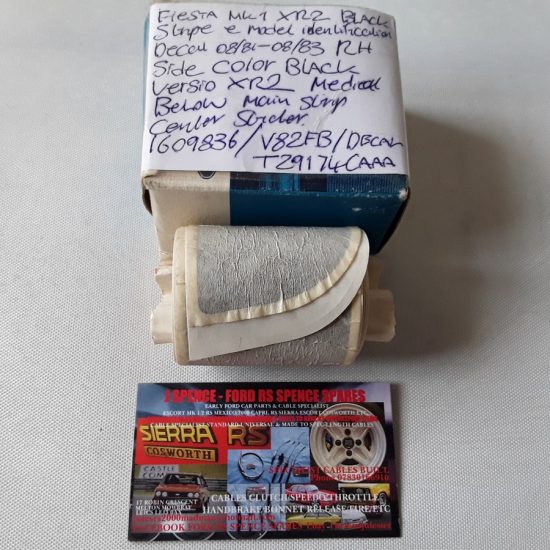 FIESTA MK1 XR2 BLACK
Stripe e model identification
Decal 08/81-08/83 RH
Side Color BLACK
Versio XR2 Medical
Below Main Strip
Center Strider.
1609836/V82FB/DECAL
T29174CAAA
J SPENCE - FORD RS SPENCE SPARES
EARLY FORD CAR PARTS & CABLE SPECIALIST
ESCORT MK 1/2 RS MEXICO/2000 CAPRI, RS SIERRA ESCORT COSWORTH ETC
CABLE SPECIALIST STANDARD UNIVERSAL & MADE TO SPEC LENGTH CABLES
SIERRA RS
COSWORTH
CASTLE
COMBE
Phone
17 ROBIN CRESCENT
MELTON MOWBRAY
CABLES CLUTCH/SPEEDO/THROTTLE
HANDBRAKE BONNET RELEASE/TIRE/ETC